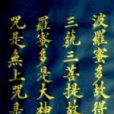 波羅蜜多故得
三藐三菩提故
羅蜜多是大神
咒是無上咒是